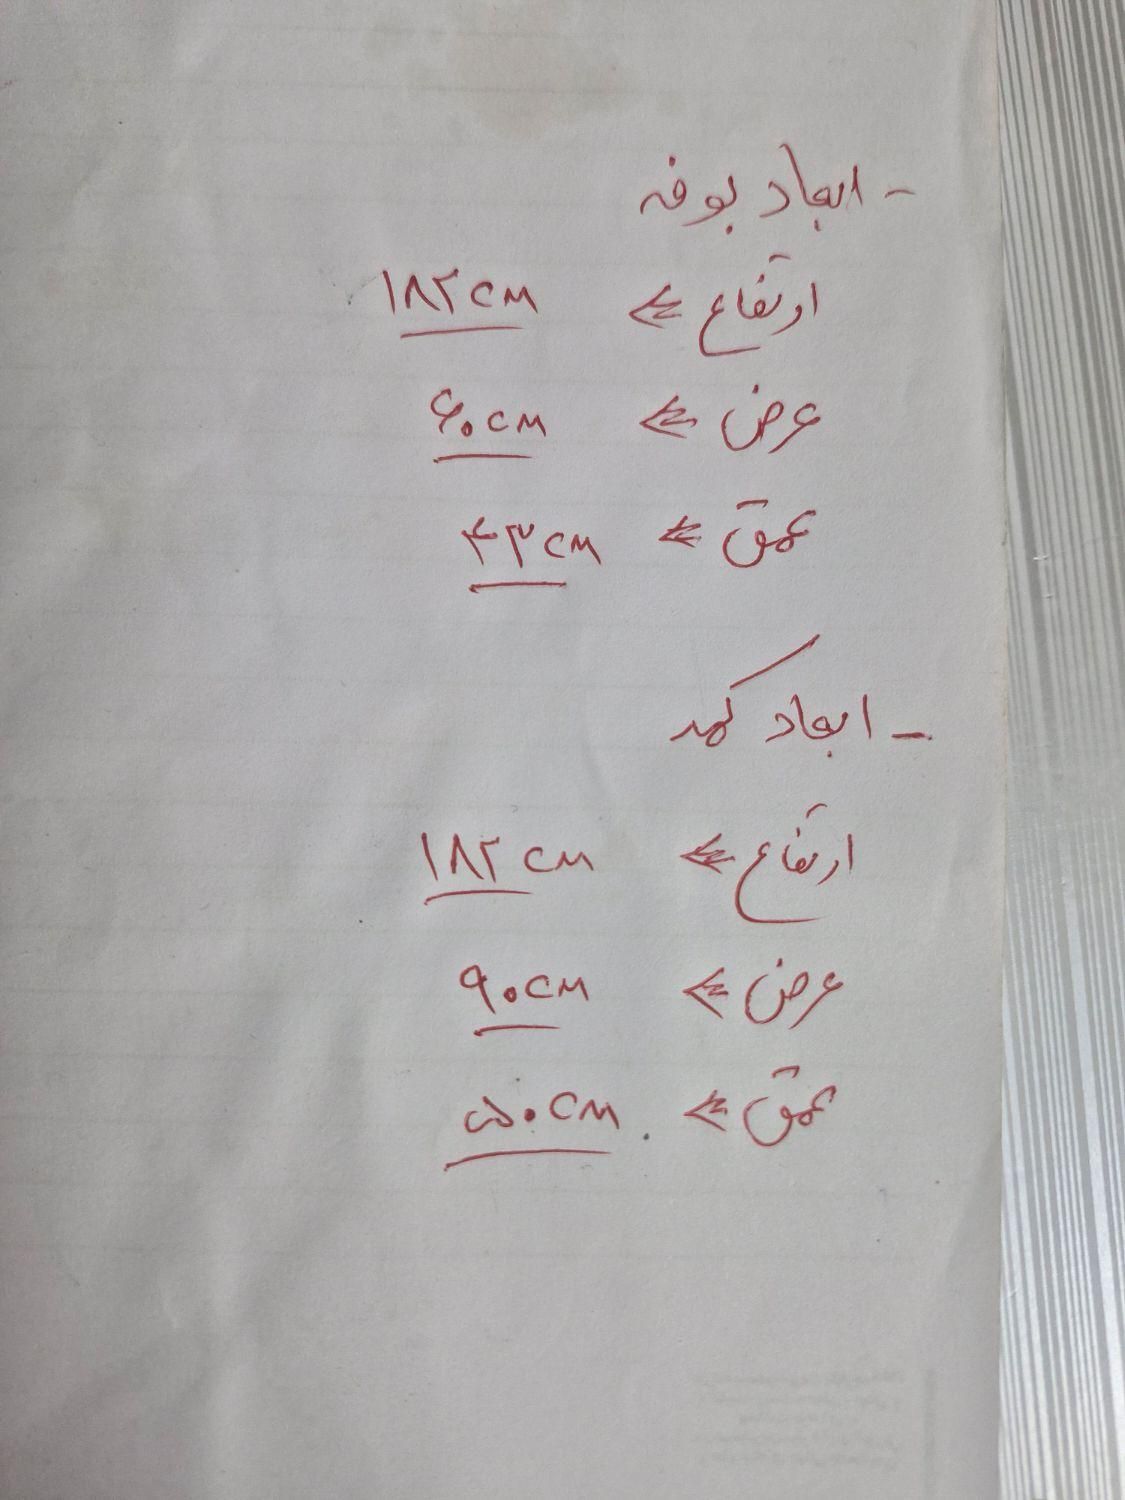 - ابعاد بوفه
ارتفاع ⇐ ۱۸۲cm
عرض ⇐ ۶۰cm
عمق ⇐ ۴۳cm
- ابعاد کمد
ارتفاع ⇐ ۱۸۲cm
عرض ⇐ ۹۰cm
عمق ⇐ ۵۰cm